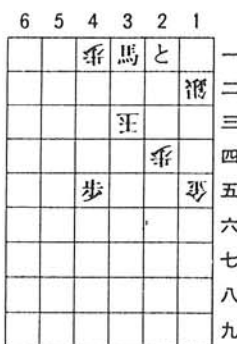 6 5 4 3 2 1
歩 馬 と 一
銀 二
玉 三
歩 四
歩 金 五
六
七
八
九